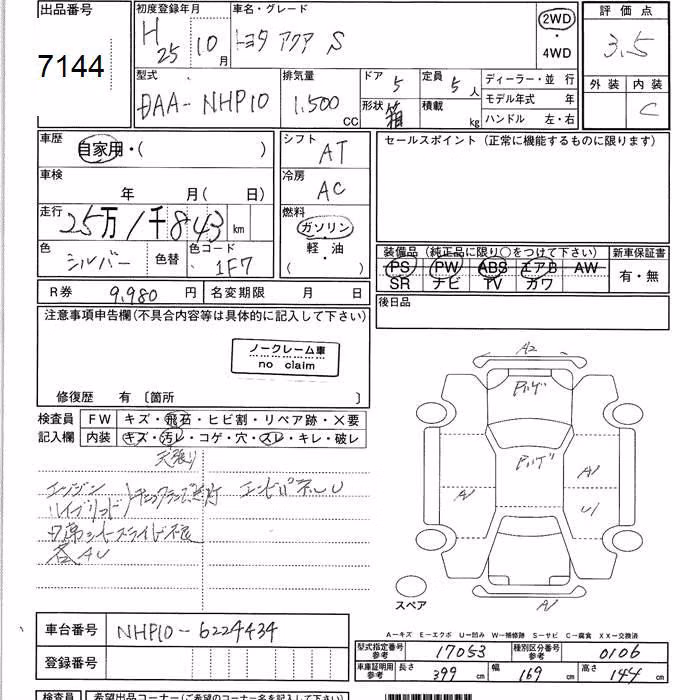 出品番号 初度登録年月 車名・グレード 評価点
7144 H 25 10月 トヨタ アクア S 2WD・4WD 3.5
型式 排気量 ドア 5 定員 5人 ディーラー・並 行 外装 内装
DAA-NHP10 1,500 CC 形状 箱 積載 kg モデル年式 年 C
ハンドル 左・右
車歴 シフト セールスポイント (正常に機能するものに限ります)
自家用・( ) AT
車検 冷房
年 月( 日) AC
走行 燃料
25万1千843 km ガソリン・軽・油 ( )
色 色替 色コード 装備品 (純正品に限り○をつけて下さい) 新車保証書
シルバー 1F7 PS PW ABS エアB AW 有・無
SR ナビ TV カワ
R券 9,980 円 名変期限 月 日 後日品
注意事項申告欄(不具合内容等は具体的に記入して下さい)
ノークレーム車
no claim
修復歴 有 〔箇所 〕
検査員 FW キズ・飛石・ヒビ割・リペア跡・×要
記入欄 内装 キズ・汚レ・コゲ・穴・スレ・キレ・破レ
天張り
エンジン
ハイブリッド)チェックランプ点灯 エンドパネルU
各AU
A2
A1
A1
U1
A1
スペア
A-キズ E-エクボ U-凹み W-補修跡 S-サビ C-腐食 XX-交換済
車台番号 NHP10-6224434
登録番号
型式指定番号 参考 17053 種別区分番号 参考 0106
車庫証明用 参考 長さ 399 cm 幅 169 cm 高さ 144 cm
検査員 希望出品コーナー(ご希望のコーナー名を記入して下さい)